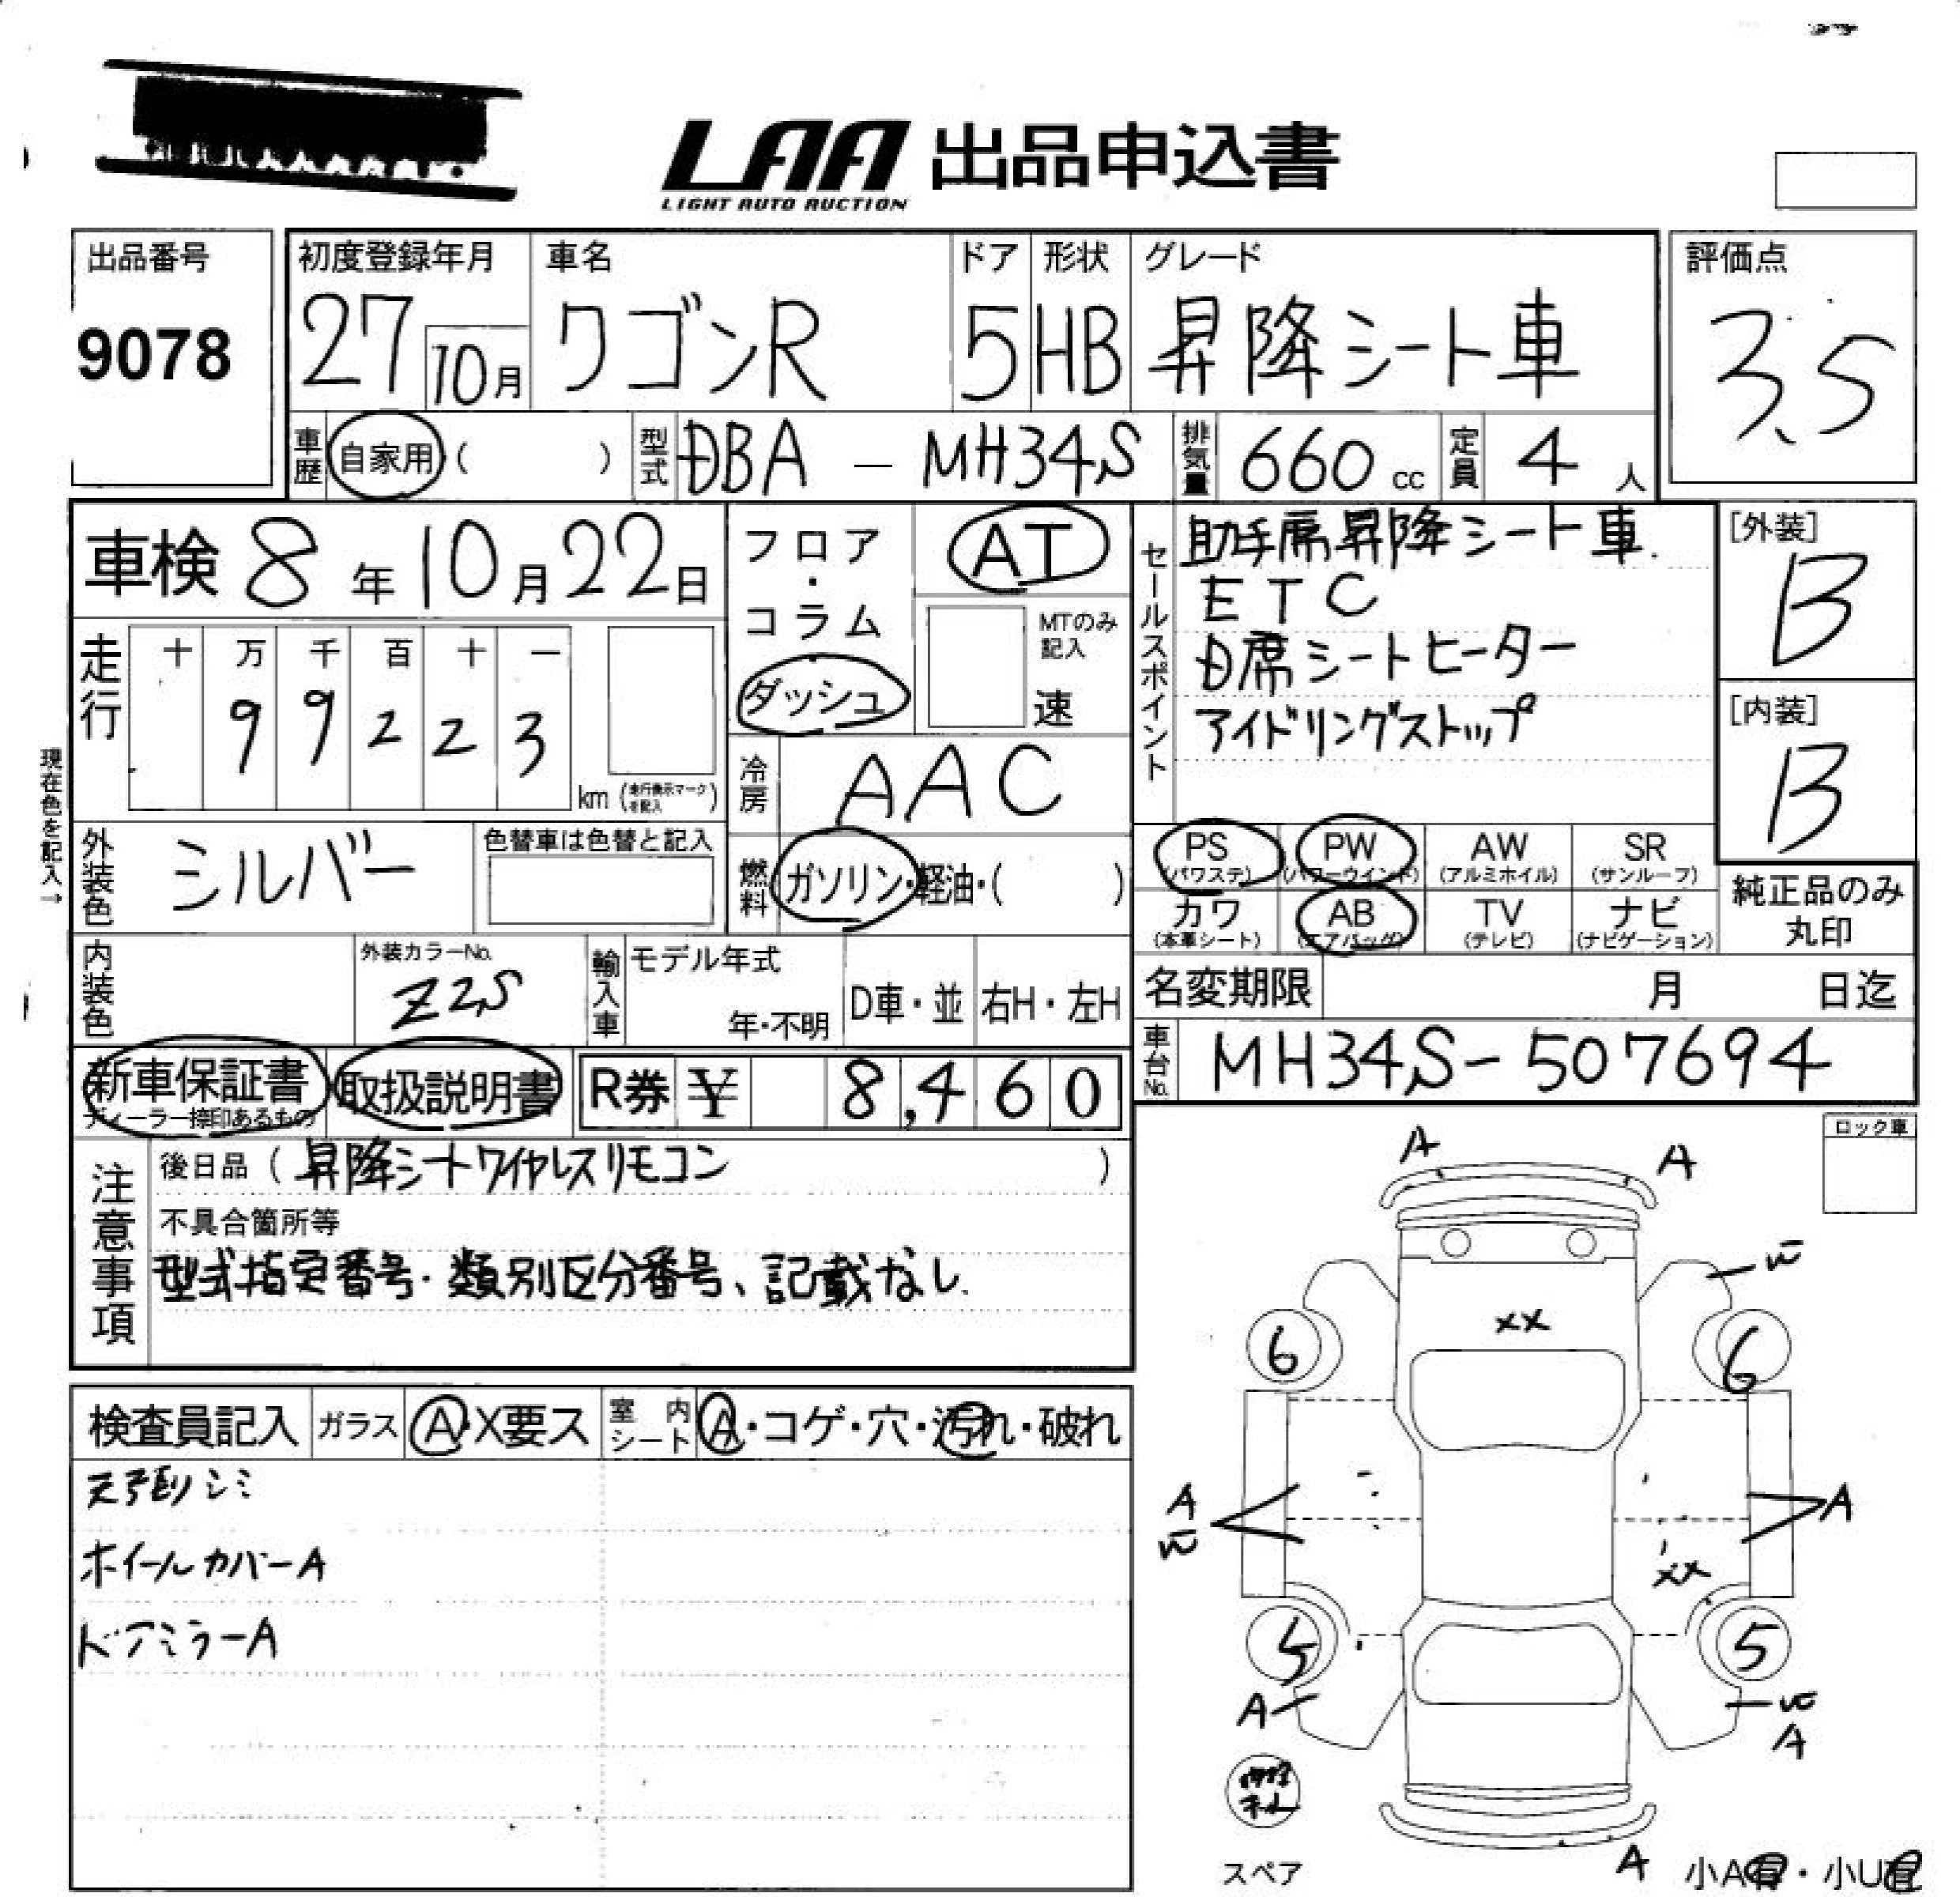 LAA 出品申込書
LIGHT AUTO AUCTION
出品番号
9078
初度登録年月
27 10月
車名
ワゴンR
ドア
5
形状
HB
グレード
昇降シート車
評価点
3.5
車歴 自家用 ( )
型式 DBA - MH34S
排気量 660 cc
定員 4 人
車検 8 年 10 月 22 日
フロア・コラム・ダッシュ
AT
MTのみ記入
速
セールスポイント
助手席昇降シート車.
ETC
D席シートヒーター
アイドリングストップ
[外装]
B
[内装]
B
走行 十 万 千 百 十 一
9 9 2 2 3
km (走行表示マークを記入)
現在色を記入→
冷房 AAC
外装色 シルバー
色替車は色替と記入
燃料 ガソリン・軽油・( )
PS (パワステ) PW (パワーウインド) AW (アルミホイル) SR (サンルーフ)
カワ (本革シート) AB (エアバッグ) TV (テレビ) ナビ (ナビゲーション)
純正品のみ
丸印
内装色
外装カラーNo.
Z2S
輸入車 モデル年式
年・不明
D車・並 右H・左H
名変期限 月 日迄
車台No. MH34S-507694
新車保証書
ディーラー捺印あるもの
取扱説明書
R券 ¥ 8,460
注意事項
後日品 ( 昇降シートワイヤレスリモコン )
不具合箇所等
型式指定番号・類別区分番号、記載なし.
ロック車
検査員記入 ガラス A・X要ス 室内シート A・コゲ・穴・汚れ・破れ
天張りシミ
ホイールカバーA
ドアミラーA
A A
W
XX
6 6
A
W
A
XX
5 5
A W
A
スペア
A
小A有・小U有